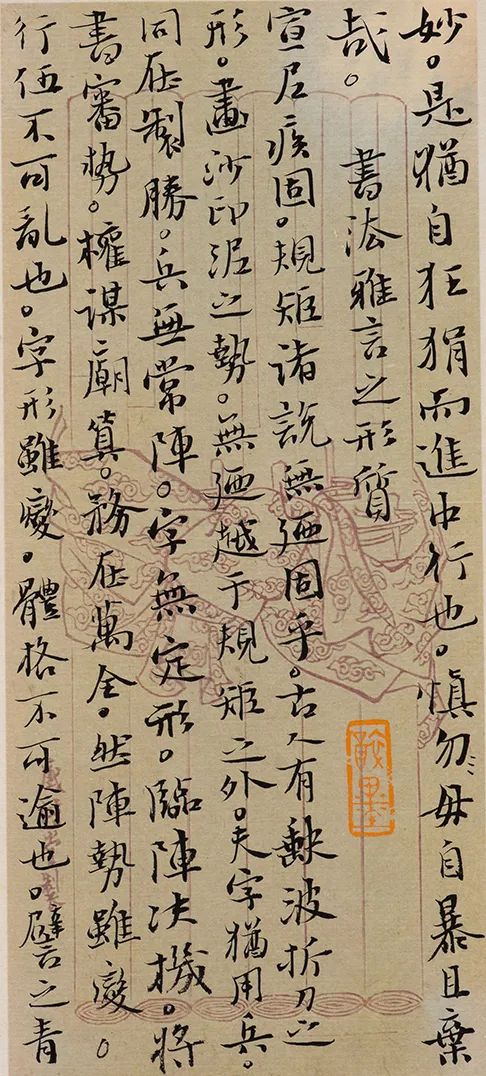 妙。是猶自狂狷而進中行也。慎勿毋自暴且棄
哉。 書法雅言之形質
宣尼疾固。規矩諸說無迺固乎。古人有缺波折刀之
形。畫沙印泥之勢。無迺越于規矩之外。夫字猶用兵。
同在製勝。兵無常陣。字無定形。臨陣决機。將
書審勢。權謀廟算。務在萬全。然陣勢雖變。
行伍不可亂也。字形雖變。體格不可逾也。譬之青